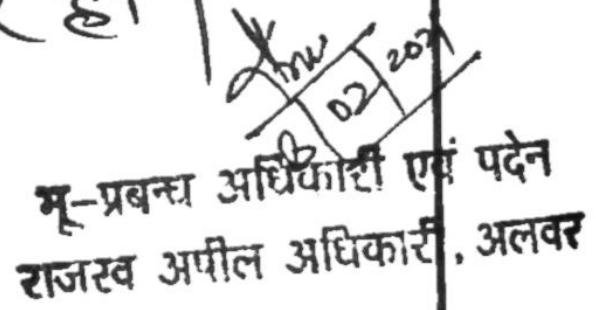 है।
02 2021
भू-प्रबन्ध अधिकारी एवं पदेन
राजस्व अपील अधिकारी, अलवर